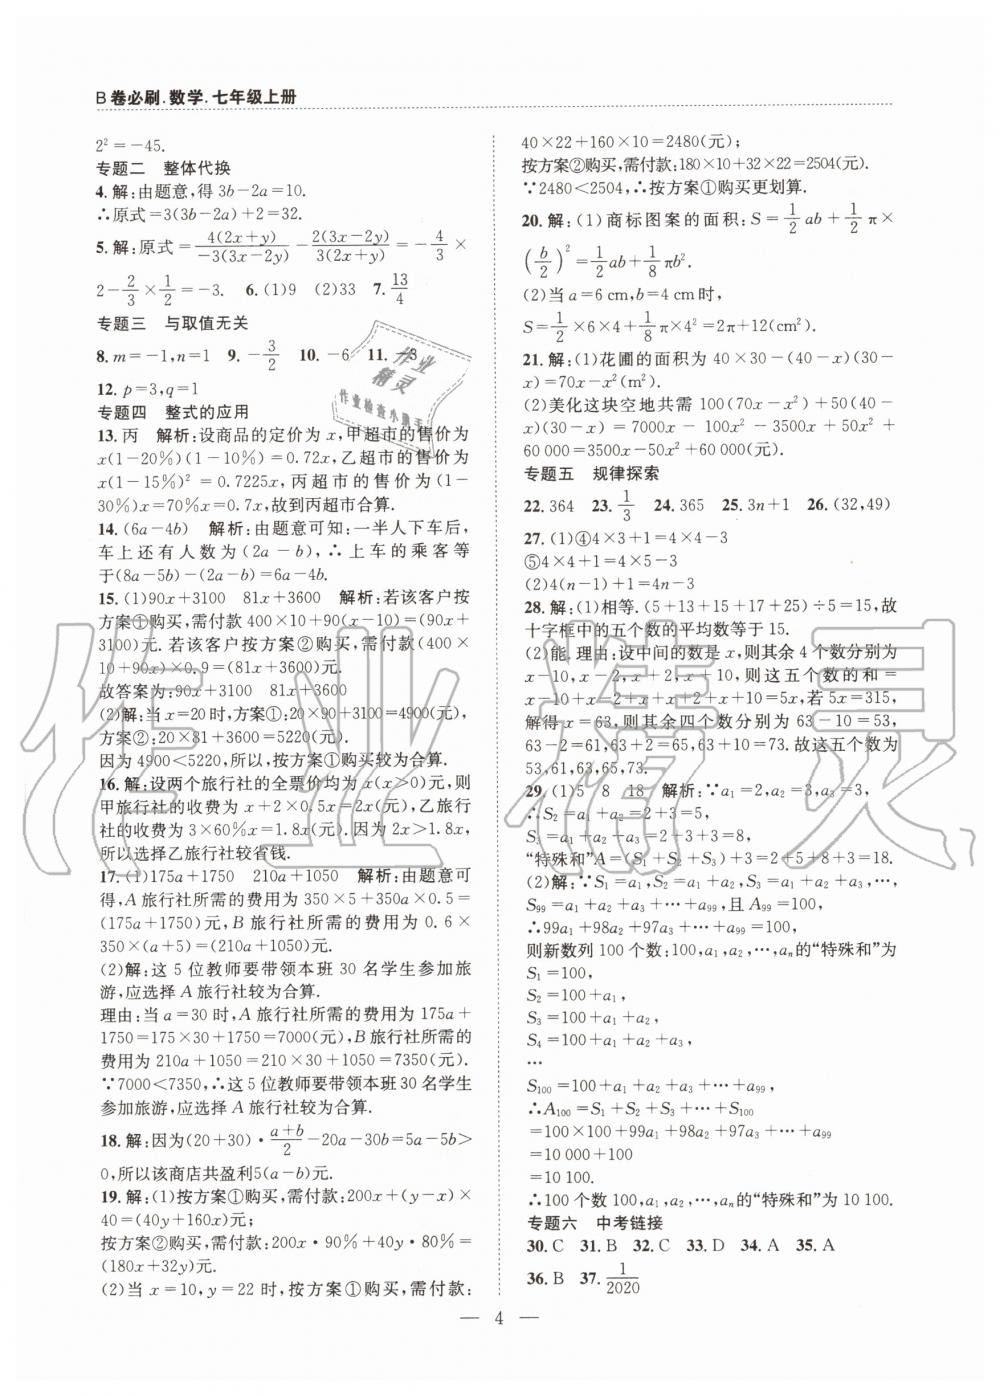 B卷必刷.数学.七年级上册
2²=-45.
专题二 整体代换
4.解:由题意,得3b-2a=10.
∴原式=3(3b-2a)+2=32.
5.解:原式=4(2x+y)/-3(3x-2y)-2(3x-2y)/3(2x+y)=-4/3×
2-2/3×1/2=-3. 6.(1)9 (2)33 7.13/4
专题三 与取值无关
8.m=-1,n=1 9.-3/2 10.-6 11.-3
12.p=3,q=1
专题四 整式的应用
13.丙 解析:设商品的定价为x,甲超市的售价为
x(1-20%)(1-10%)=0.72x,乙超市的售价为
x(1-15%)²=0.7225x,丙超市的售价为(1-
30%)x=70%x=0.7x,故到丙超市合算.
14.(6a-4b) 解析:由题意可知:一半人下车后,
车上还有人数为(2a-b),∴上车的乘客等
于(8a-5b)-(2a-b)=6a-4b.
15.(1)90x+3100 81x+3600 解析:若该客户按
方案①购买,需付款400×10+90(x-10)=(90x+
3100)元.若该客户按方案②购买,需付款(400×
10+90x)×0.9=(81x+3600)元.
故答案为:90x+3100 81x+3600
(2)解:当x=20时,方案①:20×90+3100=4900(元),
方案②:20×81+3600=5220(元).
因为4900<5220,所以按方案①购买较为合算.
16.解:设两个旅行社的全票价均为x(x>0)元,则
甲旅行社的收费为x+2×0.5x=2x(元),乙旅行
社的收费为3×60%x=1.8x(元).因为2x>1.8x,
所以选择乙旅行社较省钱.
17.(1)175a+1750 210a+1050 解析:由题意可
得,A旅行社所需的费用为350×5+350a×0.5=
(175a+1750)元,B旅行社所需的费用为0.6×
350×(a+5)=(210a+1050)元.
(2)解:这5位教师要带领本班30名学生参加旅
游,应选择A旅行社较为合算.
理由:当a=30时,A旅行社所需的费用为175a+
1750=175×30+1750=7000(元),B旅行社所需的
费用为210a+1050=210×30+1050=7350(元).
∵7000<7350,∴这5位教师要带领本班30名学生
参加旅游,应选择A旅行社较为合算.
18.解:因为(20+30)·a+b/2-20a-30b=5a-5b>
0,所以该商店共盈利5(a-b)元.
19.解:(1)按方案①购买,需付款:200x+(y-x)×
40=(40y+160x)元;
按方案②购买,需付款:200x·90%+40y·80%=
(180x+32y)元.
(2)当x=10,y=22时,按方案①购买,需付款:
40×22+160×10=2480(元);
按方案②购买,需付款:180×10+32×22=2504(元).
∵2480<2504,∴按方案①购买更划算.
20.解:(1)商标图案的面积:S=1/2ab+1/2π×
(b/2)²=1/2ab+1/8πb².
(2)当a=6 cm,b=4 cm时,
S=1/2×6×4+1/8π×4²=2π+12(cm²).
21.解:(1)花圃的面积为40×30-(40-x)(30-
x)=70x-x²(m²).
(2)美化这块空地共需100(70x-x²)+50(40-
x)(30-x)=7000x-100x²-3500x+50x²+
60 000=3500x-50x²+60 000(元).
专题五 规律探索
22.364 23.1/3 24.365 25.3n+1 26.(32,49)
27.(1)④4×3+1=4×4-3
⑤4×4+1=4×5-3
(2)4(n-1)+1=4n-3
28.解:(1)相等.(5+13+15+17+25)÷5=15,故
十字框中的五个数的平均数等于15.
(2)能.理由:设中间的数是x,则其余4个数分别为
x-10,x-2,x+2,x+10,则这五个数的和=
x-10+x-2+x+x+2+x+10=5x,若5x=315,
解得x=63,则其余四个数分别为63-10=53,
63-2=61,63+2=65,63+10=73.故这五个数为
53,61,63,65,73.
29.(1)5 8 18 解析:∵a₁=2,a₂=3,a₃=3,
∴S₂=a₁+a₂=2+3=5,
S₃=a₁+a₂+a₃=2+3+3=8,
“特殊和”A=(S₁+S₂+S₃)+3=2+5+8+3=18.
(2)解:∵S₁=a₁,S₂=a₁+a₂,S₃=a₁+a₂+a₃,…,
S₉₉=a₁+a₂+a₃+…+a₉₉,且A₉₉=100,
∴99a₁+98a₂+97a₃+…+a₉₉=100,
则新数列100个数:100,a₁,a₂,…,aₙ的“特殊和”为
S₁=100,
S₂=100+a₁,
S₃=100+a₁+a₂,
S₄=100+a₁+a₂+a₃,
…
S₁₀₀=100+a₁+a₂+a₃+…+a₉₉,
∴A₁₀₀=S₁+S₂+S₃+…+S₁₀₀
=100×100+99a₁+98a₂+97a₃+…+a₉₉
=10 000+100
=10 100.
∴100个数100,a₁,a₂,…,aₙ的“特殊和”为10 100.
专题六 中考链接
30.C 31.B 32.C 33.D 34.A 35.A
36.B 37.1/2020
— 4 —
作业精灵
作业
精灵
作业检查小帮手